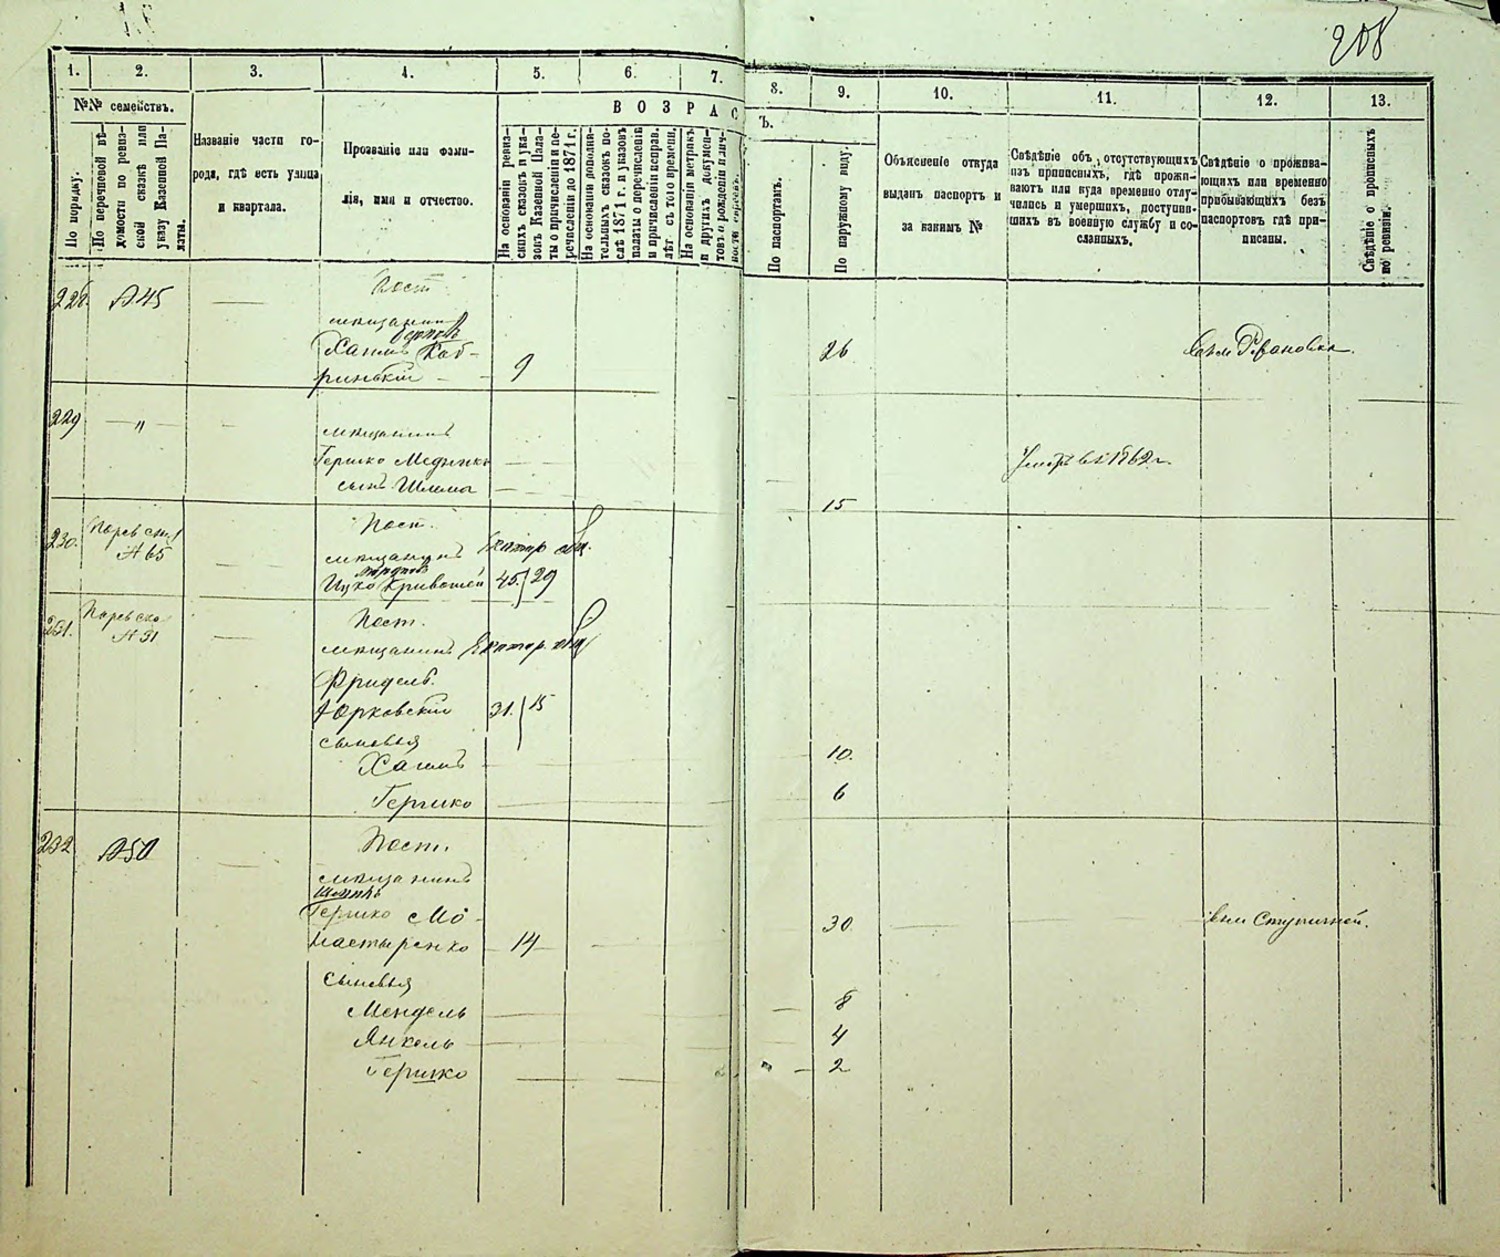 208
1. 2. 3. 4. 5. 6. 7. 8. 9. 10. 11. 12. 13.
№№ семействъ.
По порядку.
По перечневой вѣ-
домости по ревиз-
ской сказкѣ или
указу Казенной Па-
латы.
Названіе части го-
рода, гдѣ есть улица
и квартала.
Прозваніе или фами-
лія, имя и отчество.
ВОЗРАС
Ъ.
На основаніи ревиз-
скихъ сказокъ и ука-
зовъ Казенной Пала-
ты о причисленіи и пе-
речисленіи до 1871 г.
На основаніи дополни-
тельныхъ сказокъ по-
слѣ 1871 г. и указовъ
палаты о перечисленіи
и причисленіи исправ.
лѣт. съ того времени.
На основаніи метрикъ
и другихъ докумен-
товъ о рожденіи и лич-
ности евреевъ.
По паспортамъ.
По наружному виду.
Объясненіе откуда
выданъ паспортъ и
за какимъ №
Свѣдѣніе объ отсутствующихъ
изъ приписныхъ, гдѣ прожи-
ваютъ или куда временно отлу-
чились и умершихъ, поступив-
шихъ въ военную службу и со-
сланныхъ.
Свѣдѣніе о прожива-
ющихъ или временно
прибывающихъ безъ
паспортовъ гдѣ при-
писаны.
Свѣдѣніе о прописныхъ
по ревизіи.
228. №45 Пост.
мѣщанинъ
Хаимъ Коб- 26
ринскій 9
229 — " — мѣщанинъ
Гершко Меднико Умеръ въ 1862 г.
сынъ Шлема 15
230. №65 Пост.
мѣщанинъ
Ицко Кривошей 45. 29
231. №31 Пост.
мѣщанинъ
Фридель
Юрковскій 31. 15
сыновья
Хаимъ 10.
Гершко 6
232 №50 Пост.
мѣщанинъ
Гершко Мо- 30
настыренко 14
сыновья
Мендель 8
Янкель 4
Гершко 2